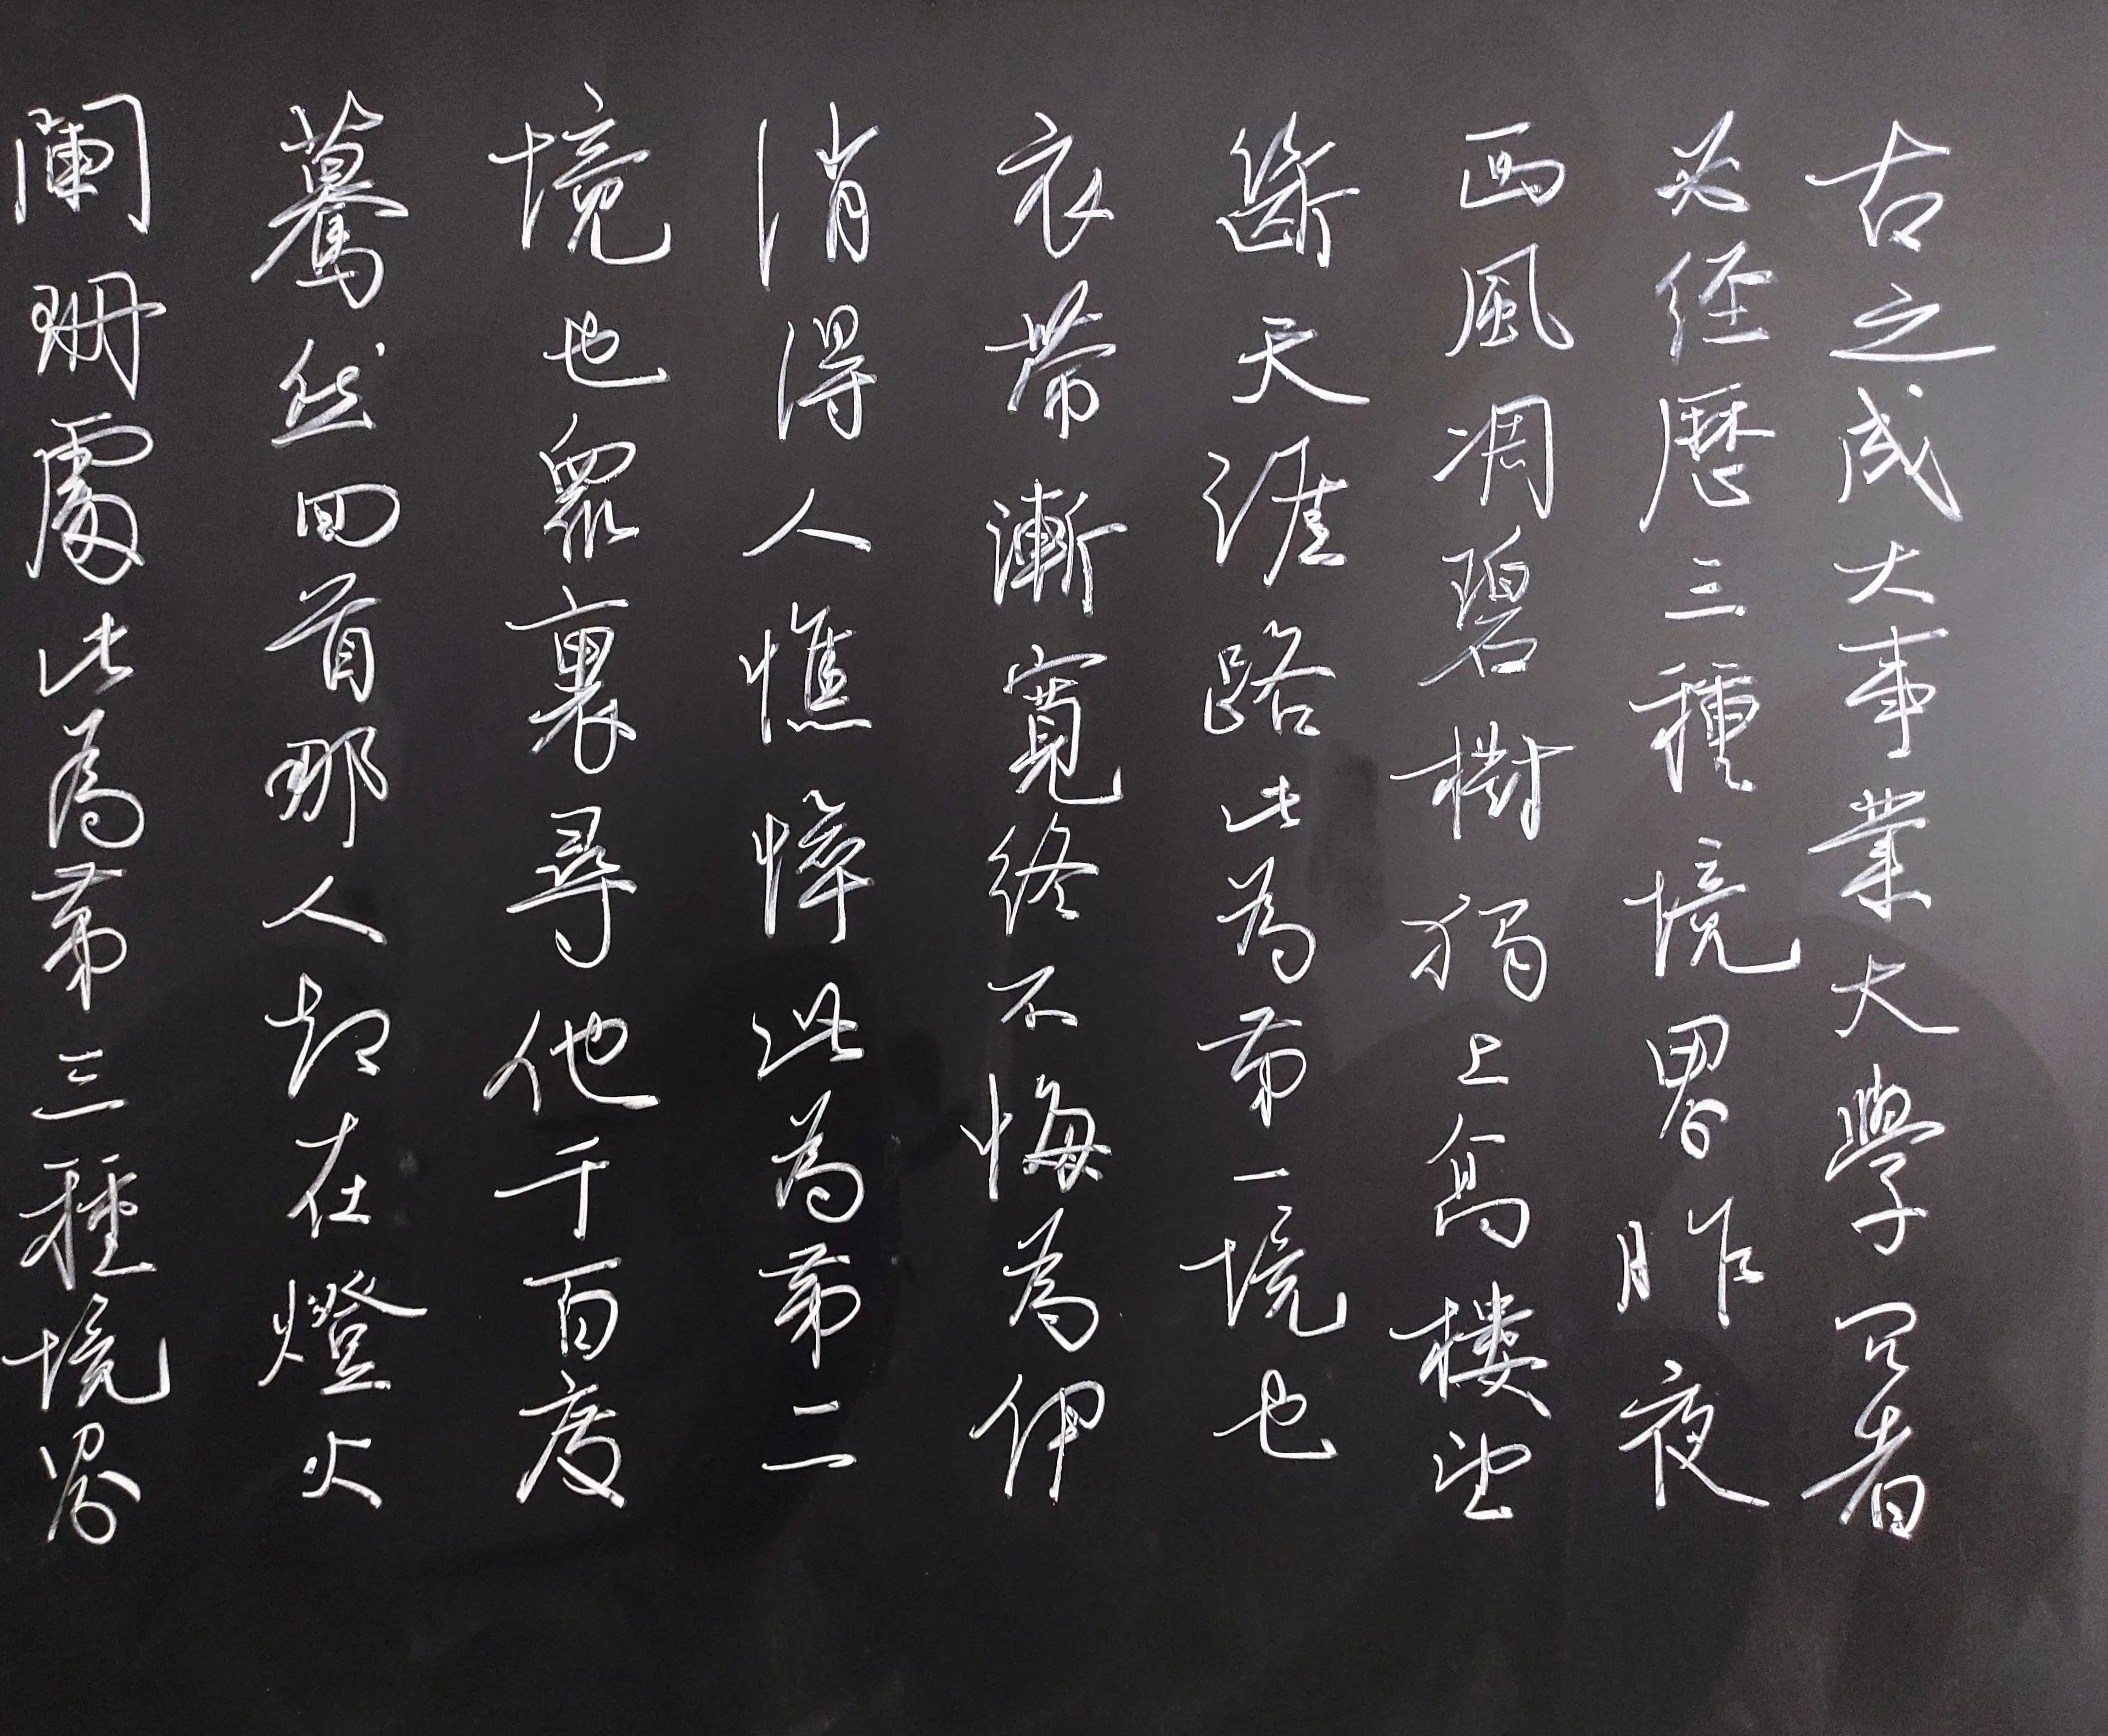 古之成大事業大學问者
必經歷三種境界昨夜
西風凋碧樹獨上高樓望
斷天涯路此為第一境也
衣帶漸寬終不悔為伊
消得人憔悴此為第二
境也眾裏尋他千百度
驀然回首那人却在燈火
闌珊處此為第三種境界